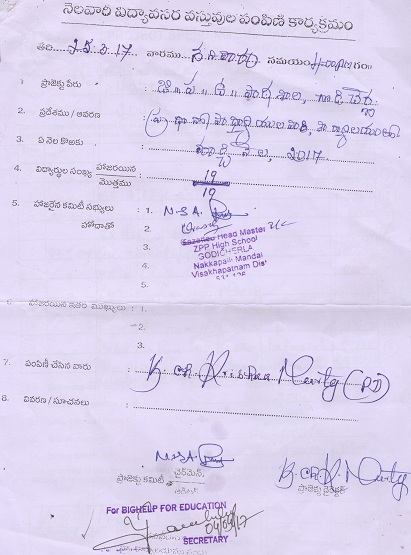 నెలవారీ విద్యావసర వస్తువుల పంపిణీ కార్యక్రమం
తేది.... 25.3.17 వారము... శనివారం సమయం
1 ప్రాజెక్టు పేరు : జి.ప.ఉ. పాఠశాల, గొడిచెర్ల
2. ప్రదేశము / ఆవరణ :
3. ఏ నెల కొఱకు : మార్చి నెల, 2017
4. విద్యార్థుల సంఖ్య హాజరయిన : 19
మొత్తము 19
5. హాజరైన కమిటీ సభ్యులు : 1. N.S.A.
హోదాతో 2.
Gazetted Head Master
3. ZPP High School
GODICHERLA
4. Nakkapalli Mandal
Visakhapatnam Dist
5.
6. హాజరయిన ఇతర ముఖ్యులు : 1.
2.
3.
7. పంపిణీ చేసిన వారు : K. Ch. Krishna Murty (PD)
8. వివరణ / సూచనలు :
N.S.A.
ప్రాజెక్టు కమిటీ చైర్మెన్,
K. Ch. K. Murty
ప్రాజెక్టు డైరెక్టర్
For BIGHELP FOR EDUCATION
04/04/17
SECRETARY